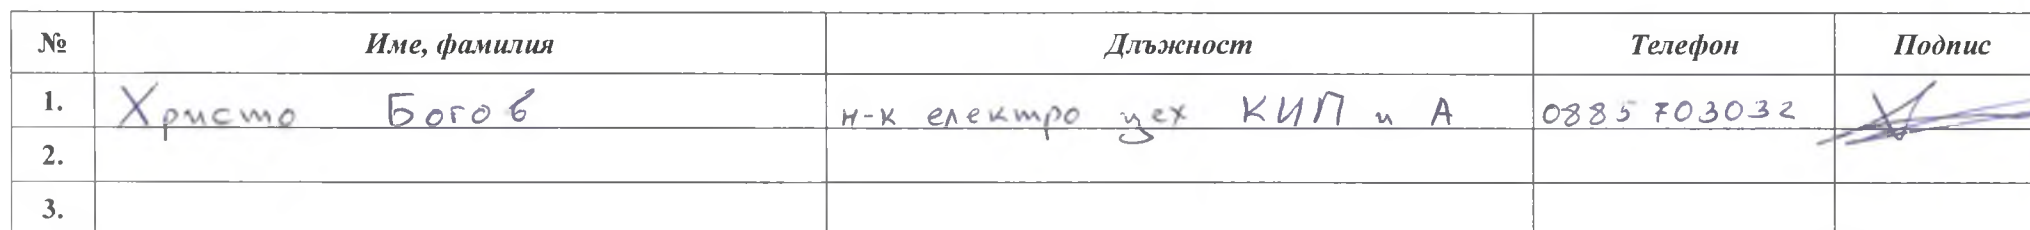 № Име, фамилия Длъжност Телефон Подпис
1. Христо Богов н-к електро цех КИП и А 0885 703032
2.
3.